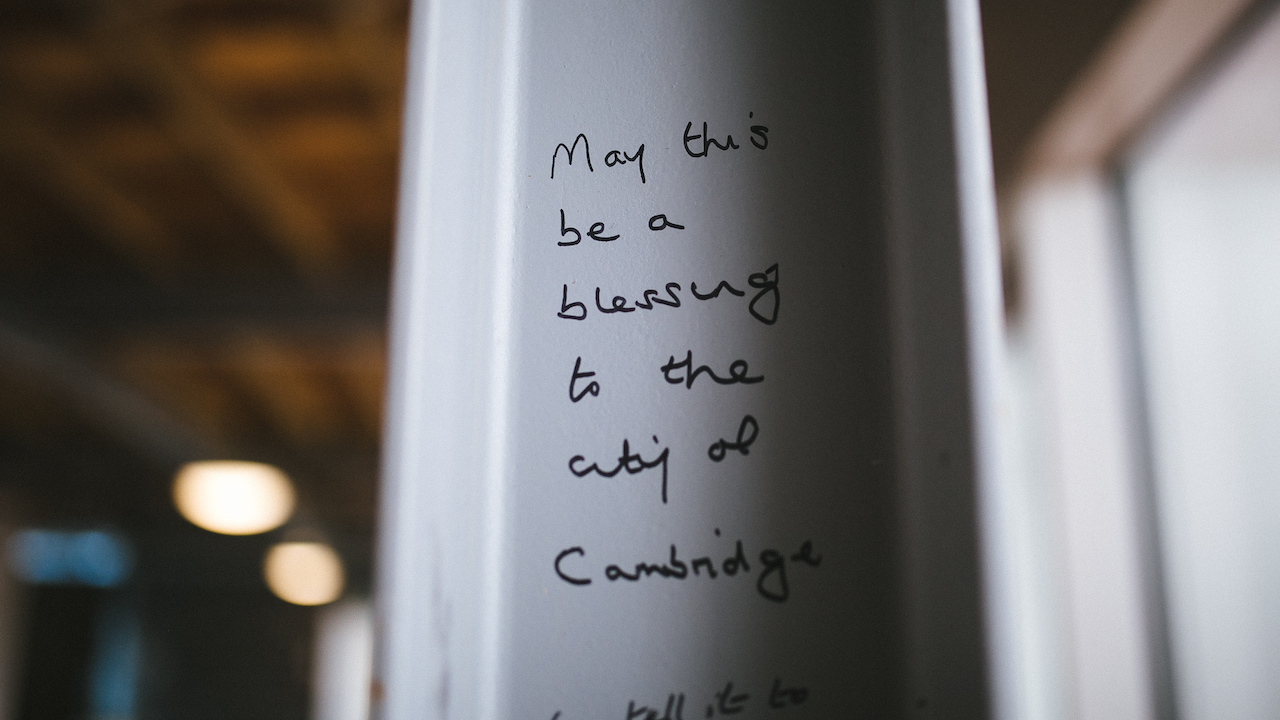 May this
be a
blessing
to the
city of
Cambridge
tell it to